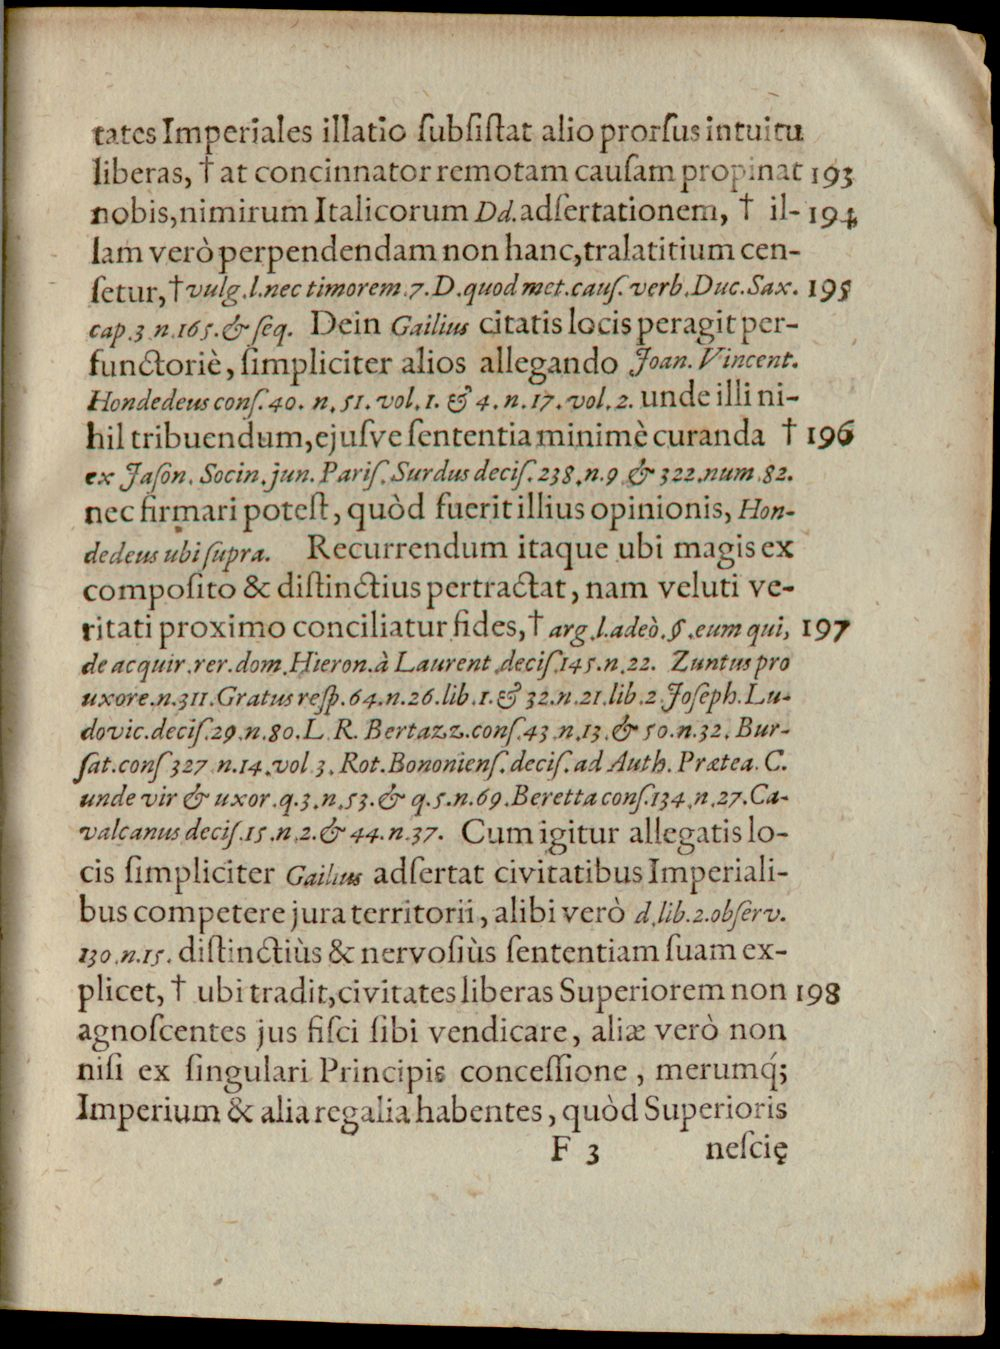 tates Imperiales illatio ſubſiſtat alio prorſus intuitu
liberas, † at concinnator remotam cauſam propinat 193
nobis, nimirum Italicorum Dd. adſertationem, † il- 194
lam verò perpendendam non hanc, tralatitium cen-
ſetur, † vulg. l. nec timorem. 7. D. quod met. cauſ. verb. Duc. Sax. 195
cap. 3. n. 165. & ſeq. Dein Gailius citatis locis peragit per-
functoriè, ſimpliciter alios allegando Joan. Vincent.
Hondedeus conſ. 40. n. 51. vol. 1. & 4. n. 17. vol. 2. unde illi ni-
hil tribuendum, ejuſve ſententia minimè curanda † 196
ex Jaſon. Socin. jun. Pariſ. Surdus deciſ. 238. n. 9. & 322. num. 82.
nec firmari poteſt, quòd fuerit illius opinionis, Hon-
dedeus ubi ſupra. Recurrendum itaque ubi magis ex
compoſito & diſtinctius pertractat, nam veluti ve-
ritati proximo conciliatur fides, † arg. l. adeò. §. eum qui, 197
de acquir. rer. dom. Hieron. à Laurent. deciſ. 145. n. 22. Zuntus pro
uxore. n. 311. Gratus reſp. 64. n. 26. lib. 1. & 32. n. 21. lib. 2. Joſeph. Lu-
dovic. deciſ. 29. n. 80. L. R. Bertazz. conſ. 43. n. 13. & 50. n. 32. Bur-
ſat. conſ 327. n. 14. vol. 3. Rot. Bononienſ. deciſ. ad Auth. Prætea. C.
unde vir & uxor. q. 3. n. 53. & q. 5. n. 69. Beretta conſ. 134. n. 27. Ca-
valcanus deciſ. 15. n. 2. & 44. n. 37. Cum igitur allegatis lo-
cis ſimpliciter Gailius adſertat civitatibus Imperiali-
bus competere jura territorii, alibi verò d. lib. 2. obſerv.
130. n. 15. diſtinctiùs & nervoſiùs ſententiam ſuam ex-
plicet, † ubi tradit, civitates liberas Superiorem non 198
agnoſcentes jus fiſci ſibi vendicare, aliæ verò non
niſi ex ſingulari Principis conceſſione, merumq́;
Imperium & alia regalia habentes, quòd Superioris
F 3 neſcię